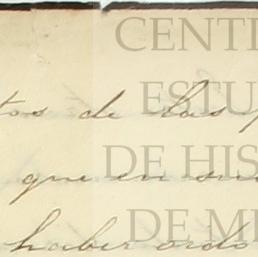 CENT
ESTU
tos de las
DE HIS
que en su
DE M
haber oido